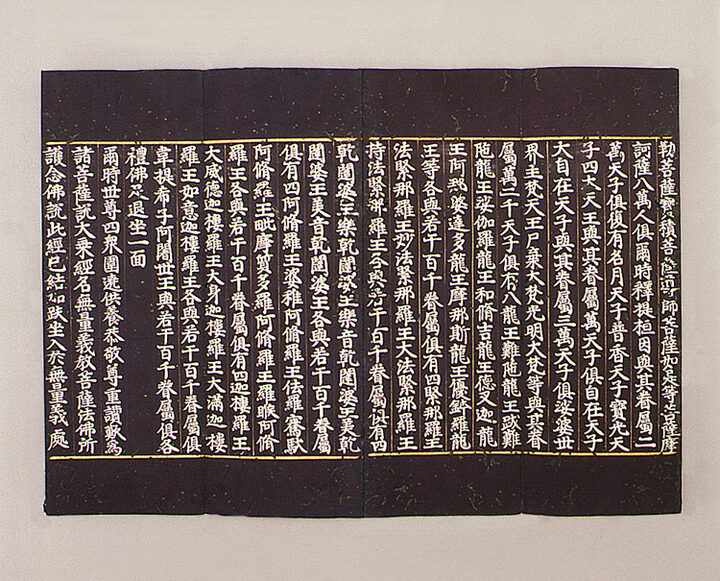 勒菩薩寶積菩薩導師菩薩如是等菩薩摩
訶薩八萬人俱爾時釋提桓因與其眷屬二
萬天子俱復有名月天子普香天子寶光天
子四大天王與其眷屬萬天子俱自在天子
大自在天子與其眷屬三萬天子俱娑婆世
界主梵天王尸棄大梵光明大梵等與其眷
屬萬二千天子俱有八龍王難陁龍王跋難
陁龍王娑伽羅龍王和脩吉龍王德叉迦龍
王阿那婆達多龍王摩那斯龍王優鉢羅龍
王等各與若干百千眷屬俱有四緊那羅王
法緊那羅王妙法緊那羅王大法緊那羅王
持法緊那羅王各與若干百千眷屬俱有四
乾闥婆王樂乾闥婆王樂音乾闥婆王美乾
闥婆王美音乾闥婆王各與若干百千眷屬
俱有四阿脩羅王婆稚阿脩羅王佉羅騫馱
阿脩羅王毗摩質多羅阿脩羅王羅睺阿脩
羅王各與若干百千眷屬俱有四迦樓羅王
大威德迦樓羅王大身迦樓羅王大滿迦樓
羅王如意迦樓羅王各與若干百千眷屬俱
韋提希子阿闍世王與若干百千眷屬俱各
禮佛足退坐一面
爾時世尊四衆圍遶供養恭敬尊重讚歎爲
諸菩薩說大乘經名無量義教菩薩法佛所
護念佛說此經已結加趺坐入於無量義處